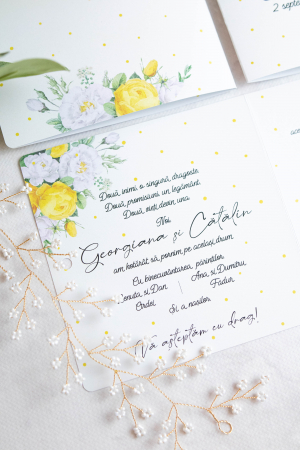 2 septe
Două, inimi o singură, dragoste.
Două, promisiuni un legământ.
Două, vieți devin una.
Noi,
Georgiana și Cătălin
am hotărât să pornim pe același drum
Cu binecuvântarea, părinților
Ionuta și Dan
Ordei
Ana și Dumitru
Fadur
Și a nașilor
Vă așteptăm cu drag!